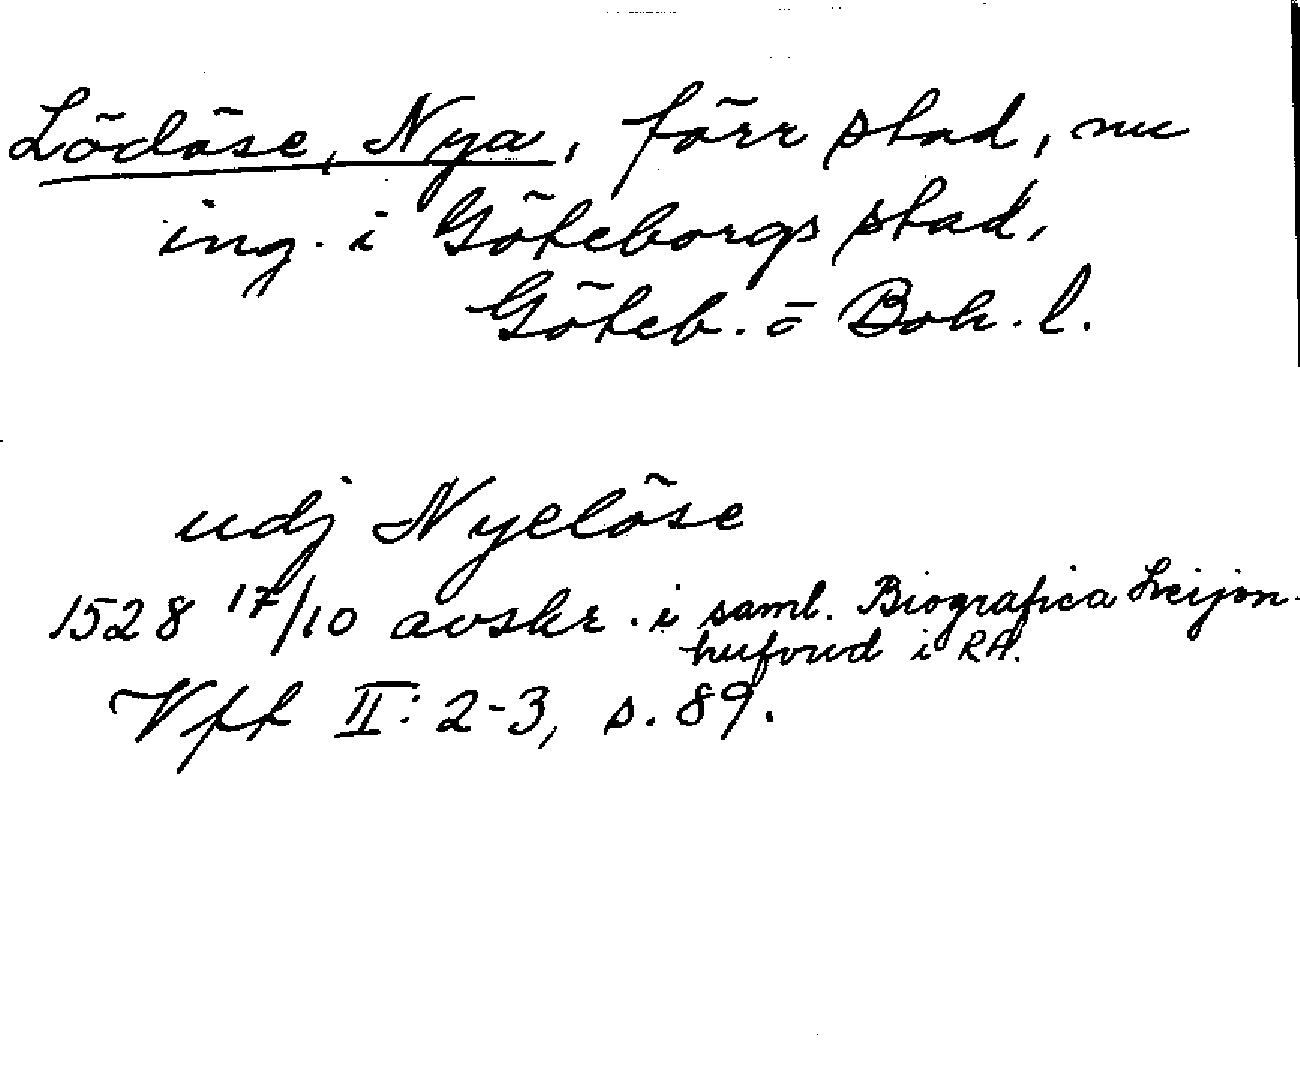 Lödöse, Nya, förr stad, nu
ing. i Göteborgs stad,
Göteb. o Boh. l.
udj Nyelöse
1528 17/10 avskr. i saml. Biografica Leijon-
hufvud i RA.
Vff II: 2-3, s. 89.